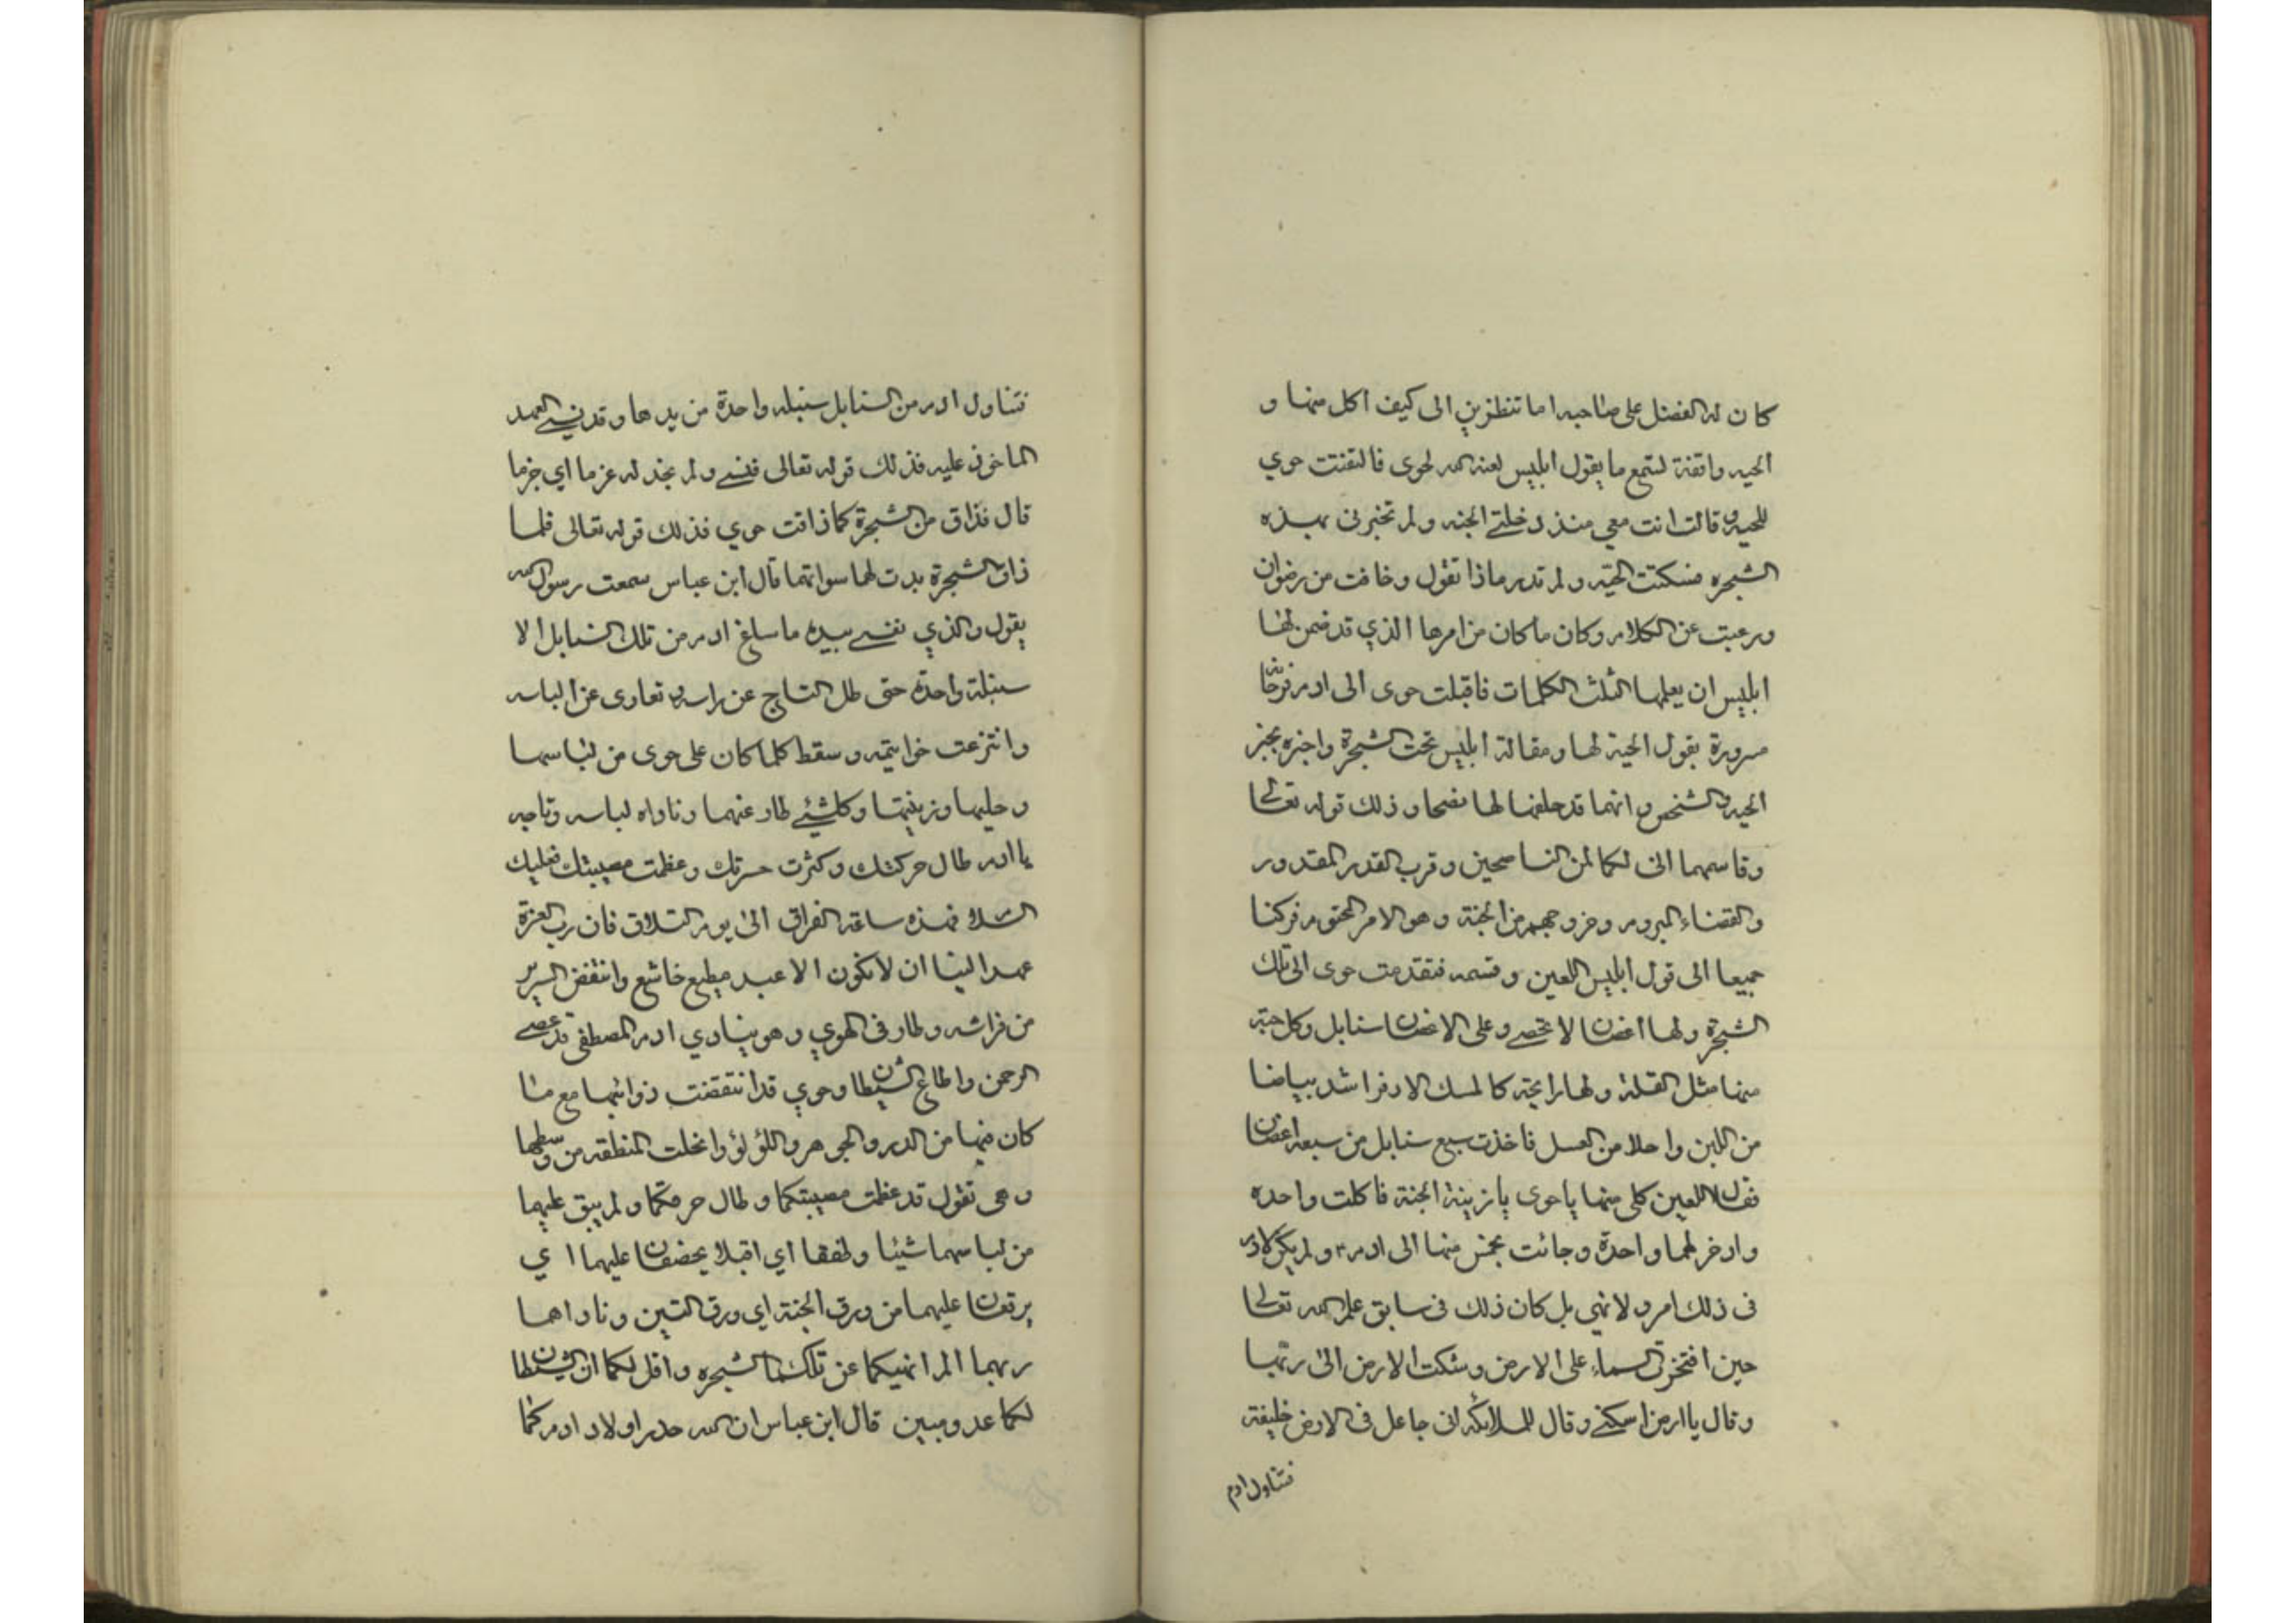 كان له الفضل على صاحبه اما تنظرين الى كيف اكل منها و
الحيه واقفة لتسمع ما يقول ابليس لعنه الله لحوى فالتفتت حوي
للحيه و قالت انت معي منذ دخلتي الجنه و لم تخبرنى بهذه
الشجره فسكتت الحيّه و لم تدر ماذا تقول و خافت من رضوان
ورعبت عن الكلام وكان ما كان من امرها الذي قد ضمن لها
ابليس ان يعلمها الثلث الكلمات فاقبلت حوى الى ادم فرحانة
مسرورة بقول الحية لها و مقالة ابليس تحت الشجرة واخبره بخبر
الحيه والشخص و انهما قد حلفها لها نصحا و ذلك قوله تعالى
وقاسمهما انى لكما لمن الناصحين و قرب القدر المقدور
والقضاء المبروم وخروجهم من الجنة و هو الامر المحتوم فركنا
جميعا الى قول ابليس اللعين و قسمه فتقدمت حوى الى تلك
الشجرة و لها اغصان لا تحصى و على الاغصان سنابل وكل حبّة
منها مثل القلة و لها رايحة كالمسك الادفر اشد بياضا
من اللبن و احلا من العسل فاخذت سبع سنابل من سبعه اغصان
فقال اللعين كلى منها يا حوى يا زينة الجنة فاكلت واحده
وادخر لهما واحدة و جائت بخمس منها الى ادم و لم يكن لادم
فى ذلك امر و لا نهي بل كان ذلك فى سابق علم الله تعالى
حين افتخرت السماء على الارض و شكت الارض الى ربّها
و قال يا ارض اسكني و قال للملائكة انى جاعل فى الارض خليفة
فتناول ادم
فتناول ادم من السنابل سنبله واحدة من يدها و قد نسي العهد
الماخوذ عليه فذلك قوله تعالى فنسي و لم نجد له عزما اي جزما
قال فذاق من الشجرة كما ذاقت حوي فذلك قوله تعالى فلما
ذاق الشجرة بدت لهما سواتهما قال ابن عباس سمعت رسول الله
يقول و الذي نفسي بيده ما ساغ ادم من تلك السنابل الا
سنبلة واحدة حتى طار التاج عن راسه و تعارى عن الباسه
وانتزعت خواتيمه و سقط كلما كان على حوى من لباسها
و حليها و زينتها و كلشيئ طار عنهما و ناداه لباسه وتاجه
يا ادم طال حركتك و كثرت حسرتك و عظمت مصيبتك فعليك
السلام فهذه ساعة الفراق الى يوم التلاق فان رب العزة
عهد الينا ان لا نكون الا عبد مطيع خاشع وانتفض السرير
من فراشه و طار فى الهوي و هو ينادي ادم المصطفى قد عصى
الرحمن واطاع الشيطان وحوي قد انتقضت ذوائبها مع ما
كان منها من الدر و الجوهر واللؤلؤ وانحلت المنطقه من وسطها
و هى تقول قد عظمت مصيبتكما و طال حزنكما و لم يبق عليهما
من لباسهما شيئا و طفقا اي اقبلا يخصفان عليهما اي
يرقعان عليهما من ورق الجنة اي ورق التين و ناداهما
ربهما الم انهيكما عن تلكما الشجره و اقل لكما ان الشيطان
لكما عدو مبين قال ابن عباس ان الله حذر اولاد ادم كما